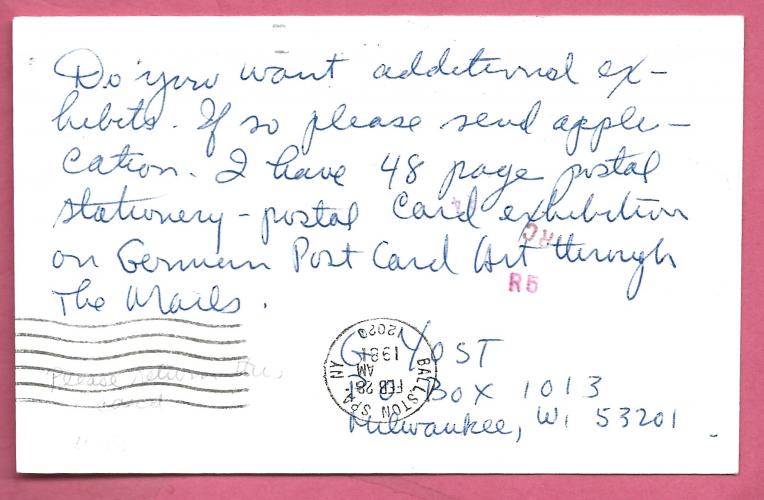 Do you want additional ex-
hibits. If so please send appli-
cation. I have 48 page postal
stationery - postal card exhibition
on German Post Card Art through
The Mails.
RC
R5
G. YOST
PO Box 1013
Milwaukee, Wi 53201
BALLSTON SPA. NY
FEB 28
AM
1981
12020
Please return this
card